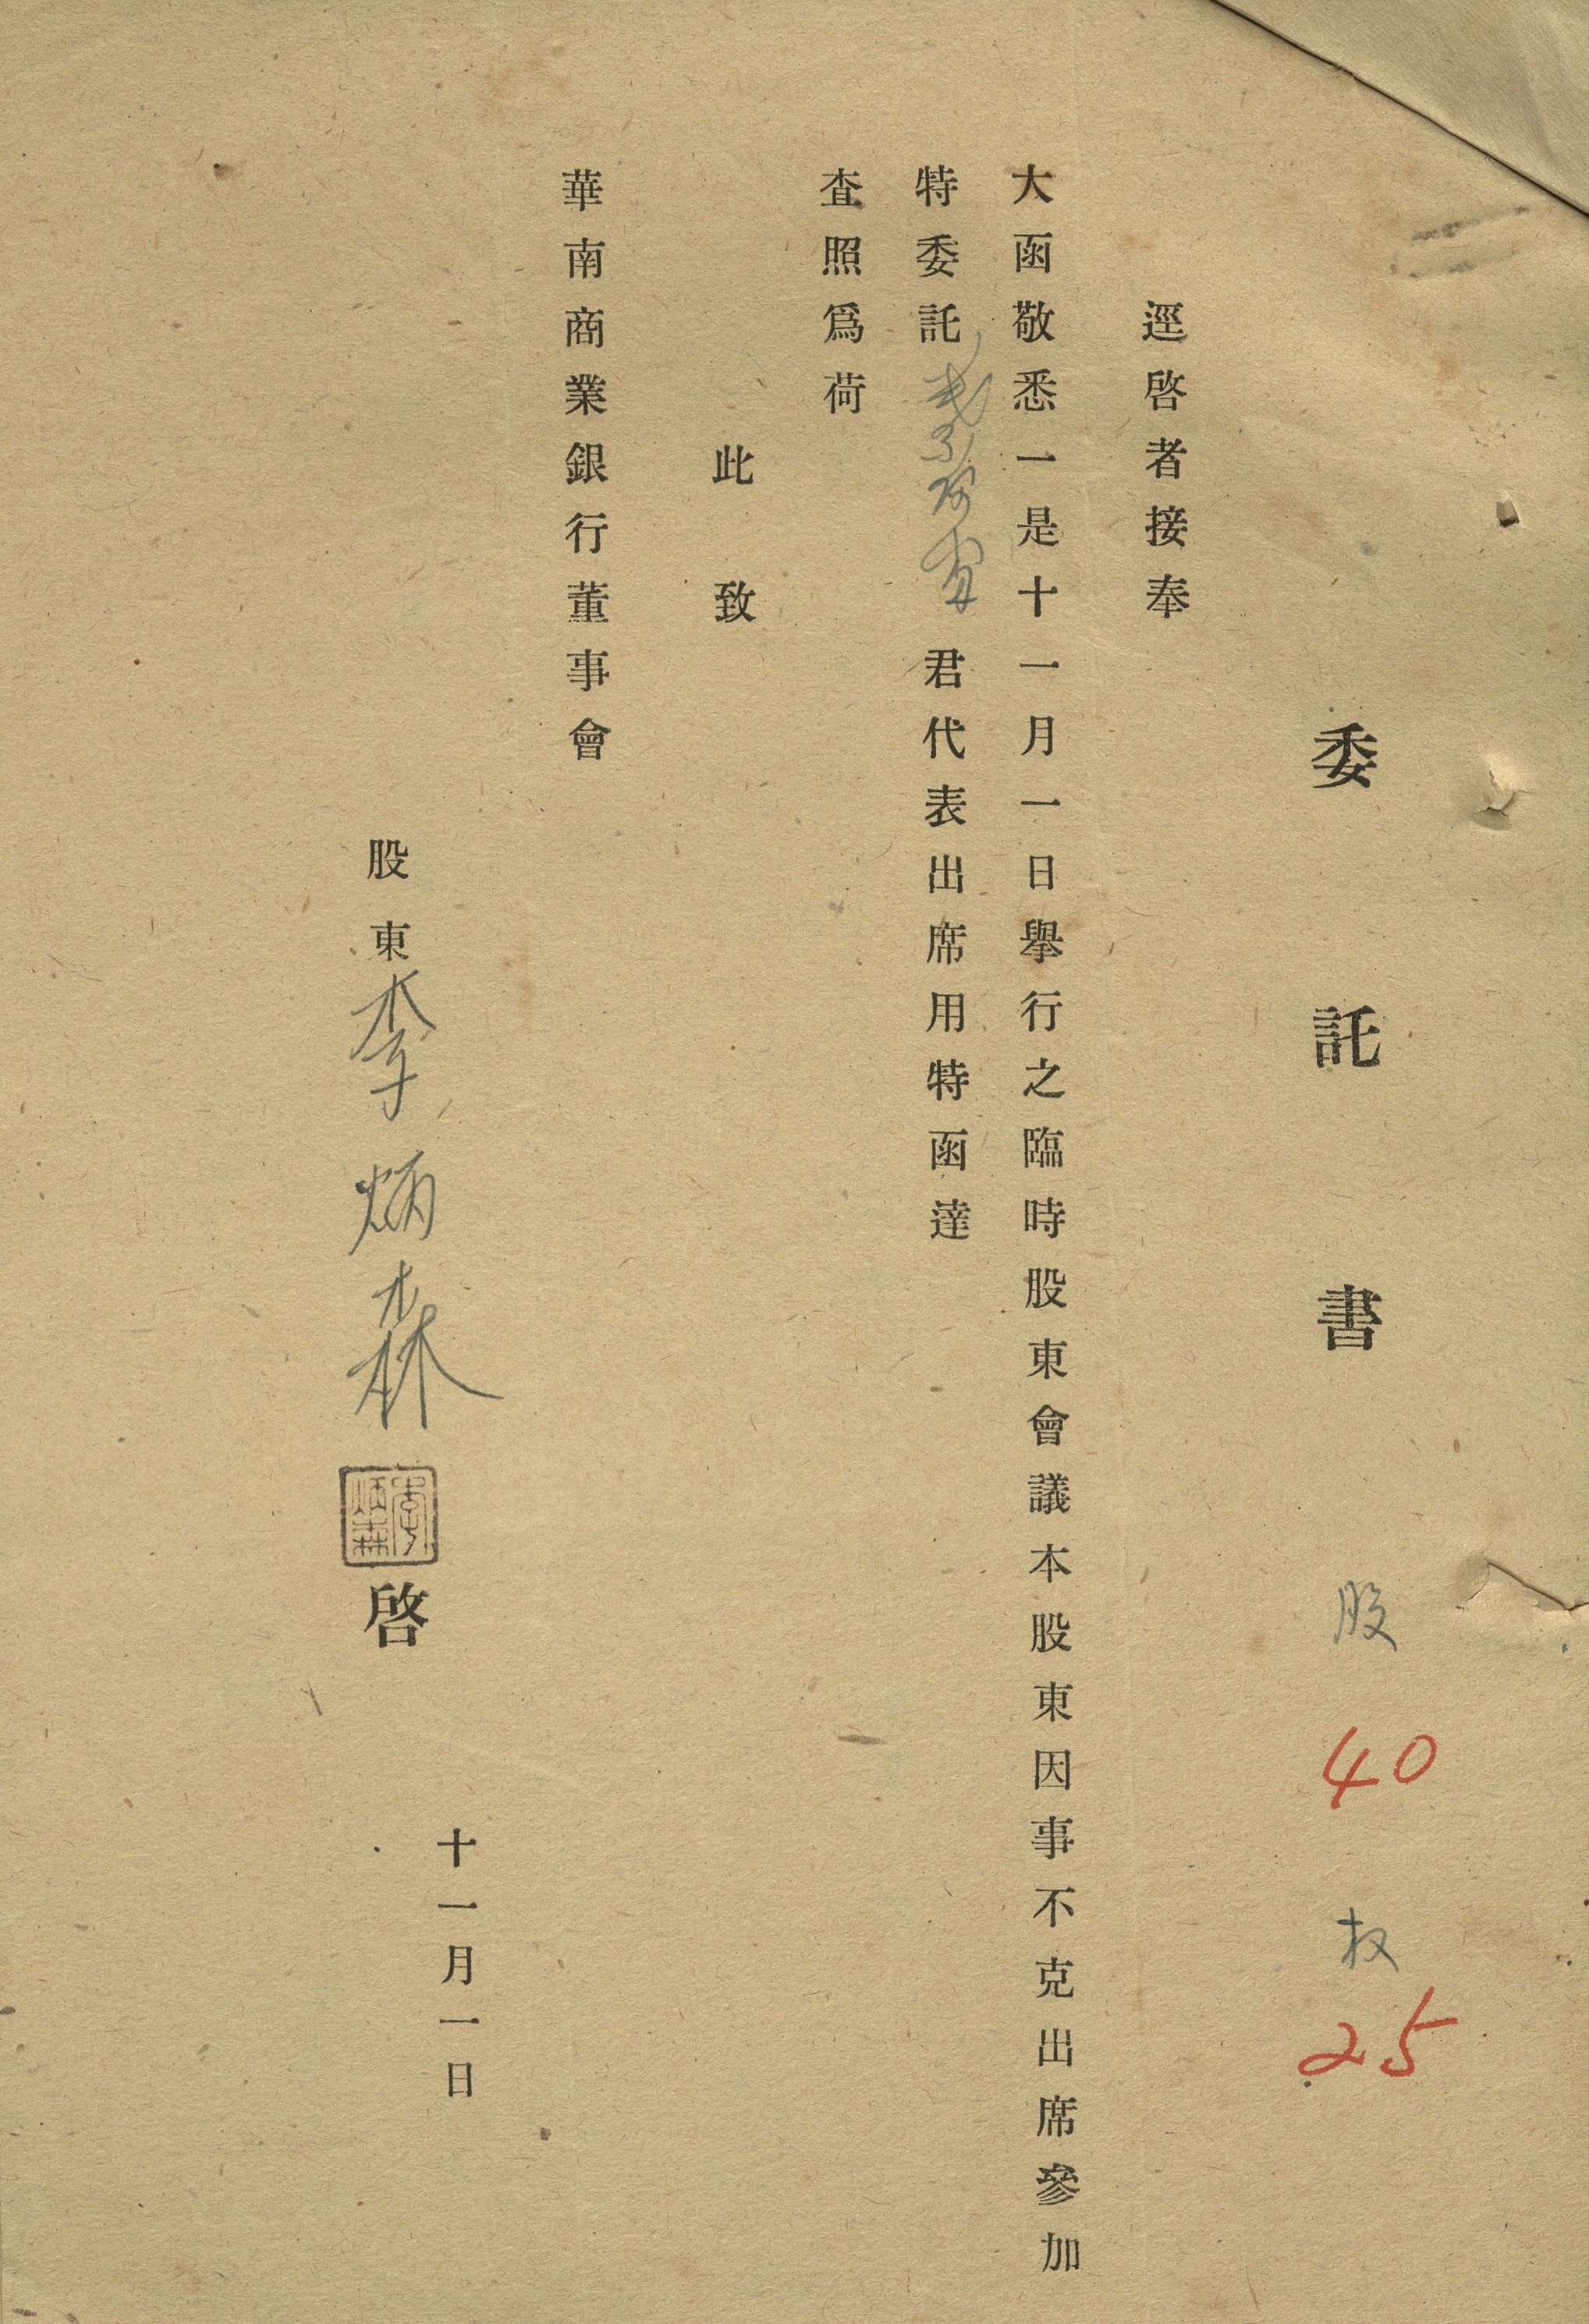 委託書 股 40 权 25
逕啓者接奉
大函敬悉一是十一月一日舉行之臨時股東會議本股東因事不克出席參加
特委託 君代表出席用特函達
查照爲荷
此致
華南商業銀行董事會
十一月一日
股東李炳森 李炳森 啓